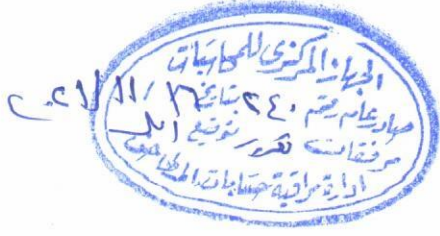 الجهاز المركزى للمحاسبات
صادر عام رقم ٢٤٠ بتاريخ
مرفقات تقرير توقيع
ادارة مراقبة حسابات المطاحن